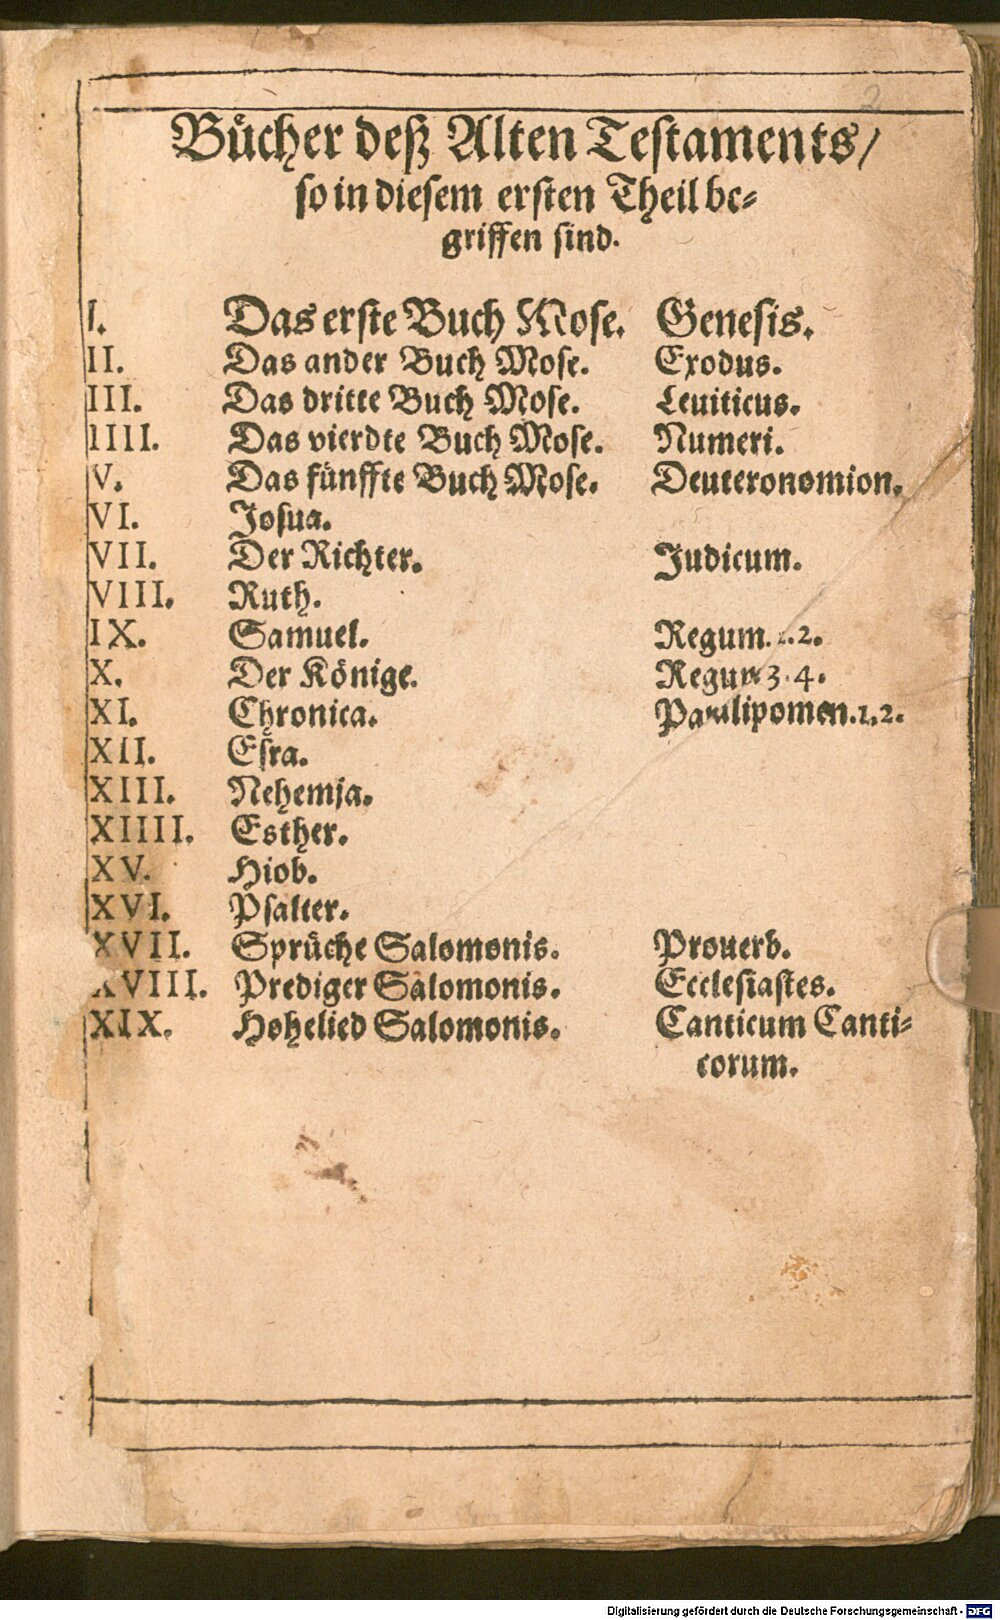 2
Bücher deß Alten Testaments/
so in diesem ersten Theil be-
griffen sind.
I. Das erste Buch Mose. Genesis.
II. Das ander Buch Mose. Exodus.
III. Das dritte Buch Mose. Leuiticus.
IIII. Das vierdte Buch Mose. Numeri.
V. Das fünffte Buch Mose. Deuteronomion.
VI. Josua.
VII. Der Richter. Judicum.
VIII. Ruth.
IX. Samuel. Regum. 1.2.
X. Der Könige. Regum 3.4.
XI. Chronica. Paralipomen.1.2.
XII. Esra.
XIII. Nehemja.
XIIII. Esther.
XV. Hiob.
XVI. Psalter.
XVII. Sprüche Salomonis. Prouerb.
XVIII. Prediger Salomonis. Ecclesiastes.
XIX. Hohelied Salomonis. Canticum Canti-
corum.
Digitalisierung gefördert durch die Deutsche Forschungsgemeinschaft - DFG